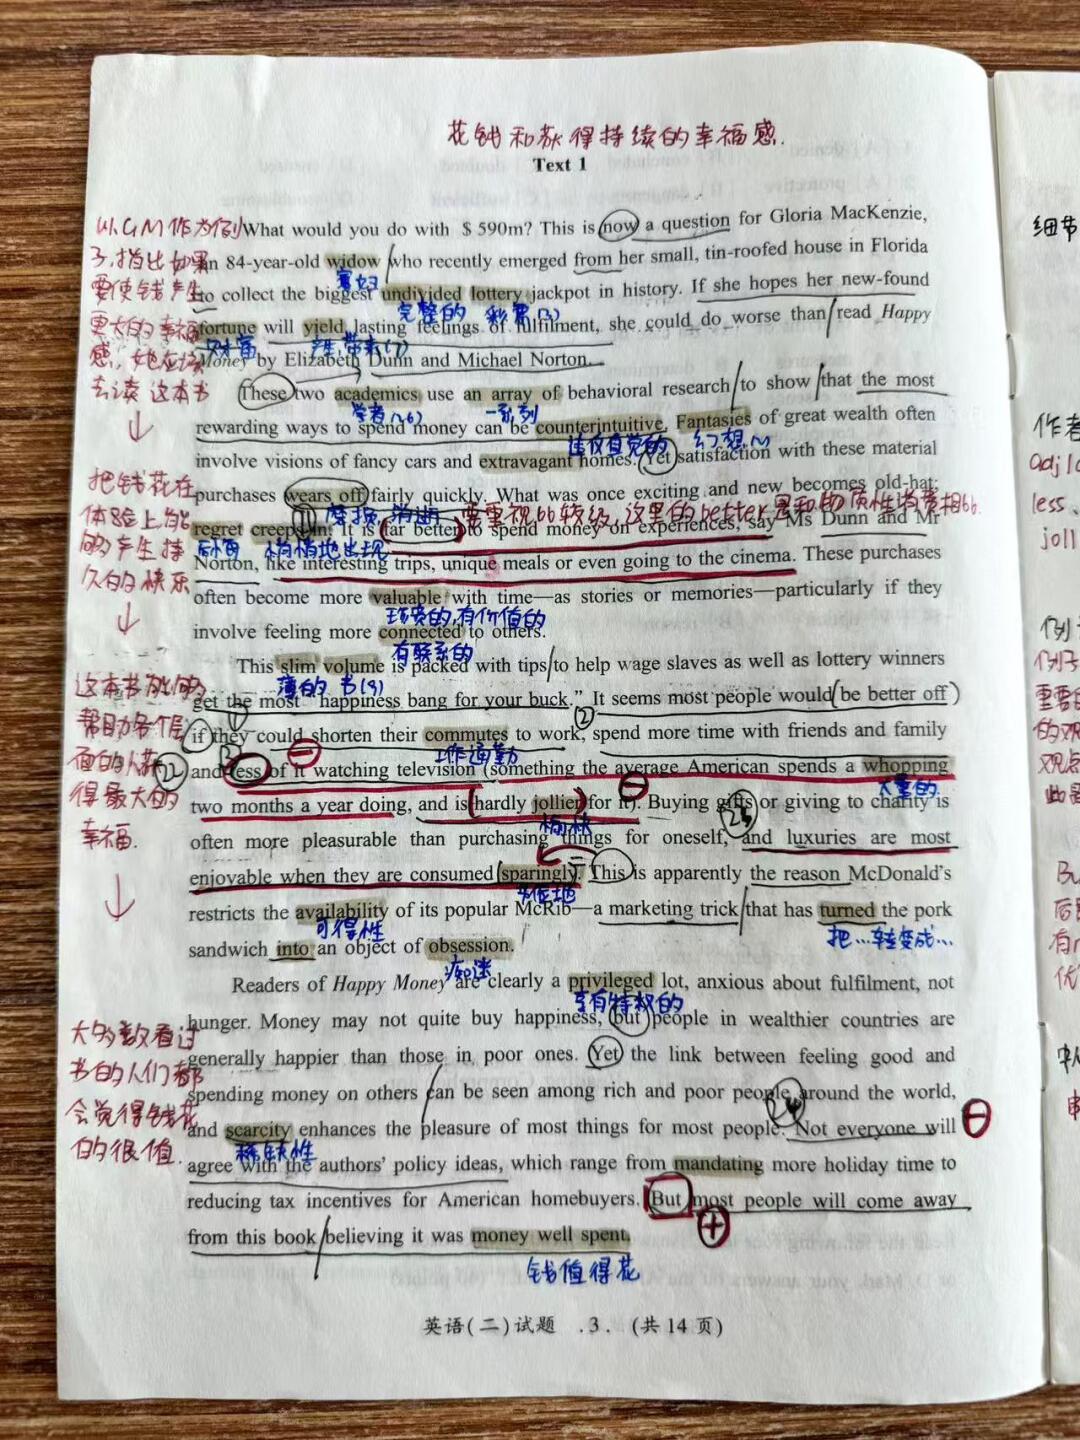 花钱和获得持续的幸福感.
Text 1
以G.M作为例 What would you do with $ 590m? This is now a question for Gloria MacKenzie,
子,指出如果 an 84-year-old widow who recently emerged from her small, tin-roofed house in Florida
寡妇
要使钱产生 to collect the biggest undivided lottery jackpot in history. If she hopes her new-found
完整的 彩票(n)
更大的幸福 fortune will yield lasting feelings of fulfilment, she could do worse than read Happy
财富 产生,带来(v)
感,她应该 Money by Elizabeth Dunn and Michael Norton.
去读这本书 These two academics use an array of behavioral research to show that the most
学者 一系列
rewarding ways to spend money can be counterintuitive. Fantasies of great wealth often
违反直觉的 幻想(n)
involve visions of fancy cars and extravagant homes. Yet satisfaction with these material
把钱花在 purchases wears off fairly quickly. What was once exciting and new becomes old-hat;
① 磨损 消逝 要重视比较级,这里的better是和物质性消费相比.
体验上能 regret creeps in. It is far better to spend money on experiences, say Ms Dunn and Mr
后悔 悄悄地出现
够产生持 Norton, like interesting trips, unique meals or even going to the cinema. These purchases
久的快乐 often become more valuable with time—as stories or memories—particularly if they
珍贵的,有价值的
involve feeling more connected to others.
有联系的
This slim volume is packed with tips to help wage slaves as well as lottery winners
薄的 书(n)
这本书能够 get the most "happiness bang for your buck." It seems most people would be better off
① ②
帮助各个层 if they could shorten their commutes to work, spend more time with friends and family
③ 工作通勤
面的人获 22 and less of it watching television (something the average American spends a whopping
大量的
得最大的 two months a year doing, and is hardly jollier for it). Buying gifts or giving to charity is
愉快 23
幸福. often more pleasurable than purchasing things for oneself, and luxuries are most
enjoyable when they are consumed sparingly. This is apparently the reason McDonald's
节俭地
restricts the availability of its popular McRib—a marketing trick that has turned the pork
可得性 把…转变成…
sandwich into an object of obsession.
痴迷
Readers of Happy Money are clearly a privileged lot, anxious about fulfilment, not
享有特权的
大多数看过 hunger. Money may not quite buy happiness, but people in wealthier countries are
书的人们都 generally happier than those in poor ones. Yet the link between feeling good and
会觉得钱花 spending money on others can be seen among rich and poor people around the world,
24
的很值. and scarcity enhances the pleasure of most things for most people. Not everyone will
稀缺性
agree with the authors' policy ideas, which range from mandating more holiday time to
reducing tax incentives for American homebuyers. But most people will come away
from this book believing it was money well spent.
钱值得花
英语(二)试题 .3. (共14页)
细节
作者
adj
less、
joll
例子
重要
的观
观点